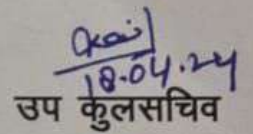 18.04.24
उप कुलसचिव